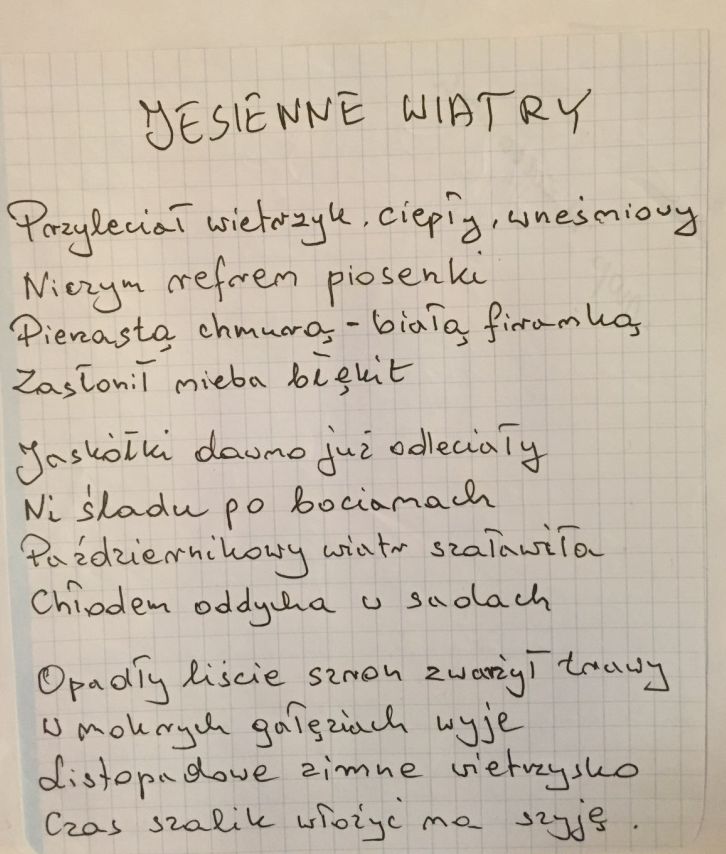 JESIENNE WIATRY
Przyleciał wietrzyk, ciepły, wrześniowy
Niczym refren piosenki
Pierzastą chmurą - białą firanką
Zasłonił nieba błękit
Jaskółki dawno już odleciały
Ni śladu po bocianach
Październikowy wiatr szaławiła
Chłodem oddycha w sadach
Opadły liście szron zwarzył trawy
W mokrych gałęziach wyje
Listopadowe zimne wietrzysko
Czas szalik włożyć na szyję.